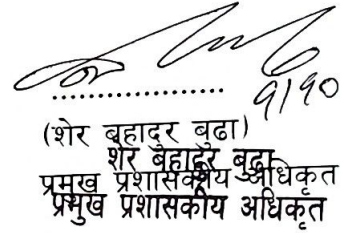 ९/१०
(शेर बहादुर बुढा)
शेर बहादुर बुढा
प्रमुख प्रशासकीय अधिकृत
प्रमुख प्रशासकीय अधिकृत